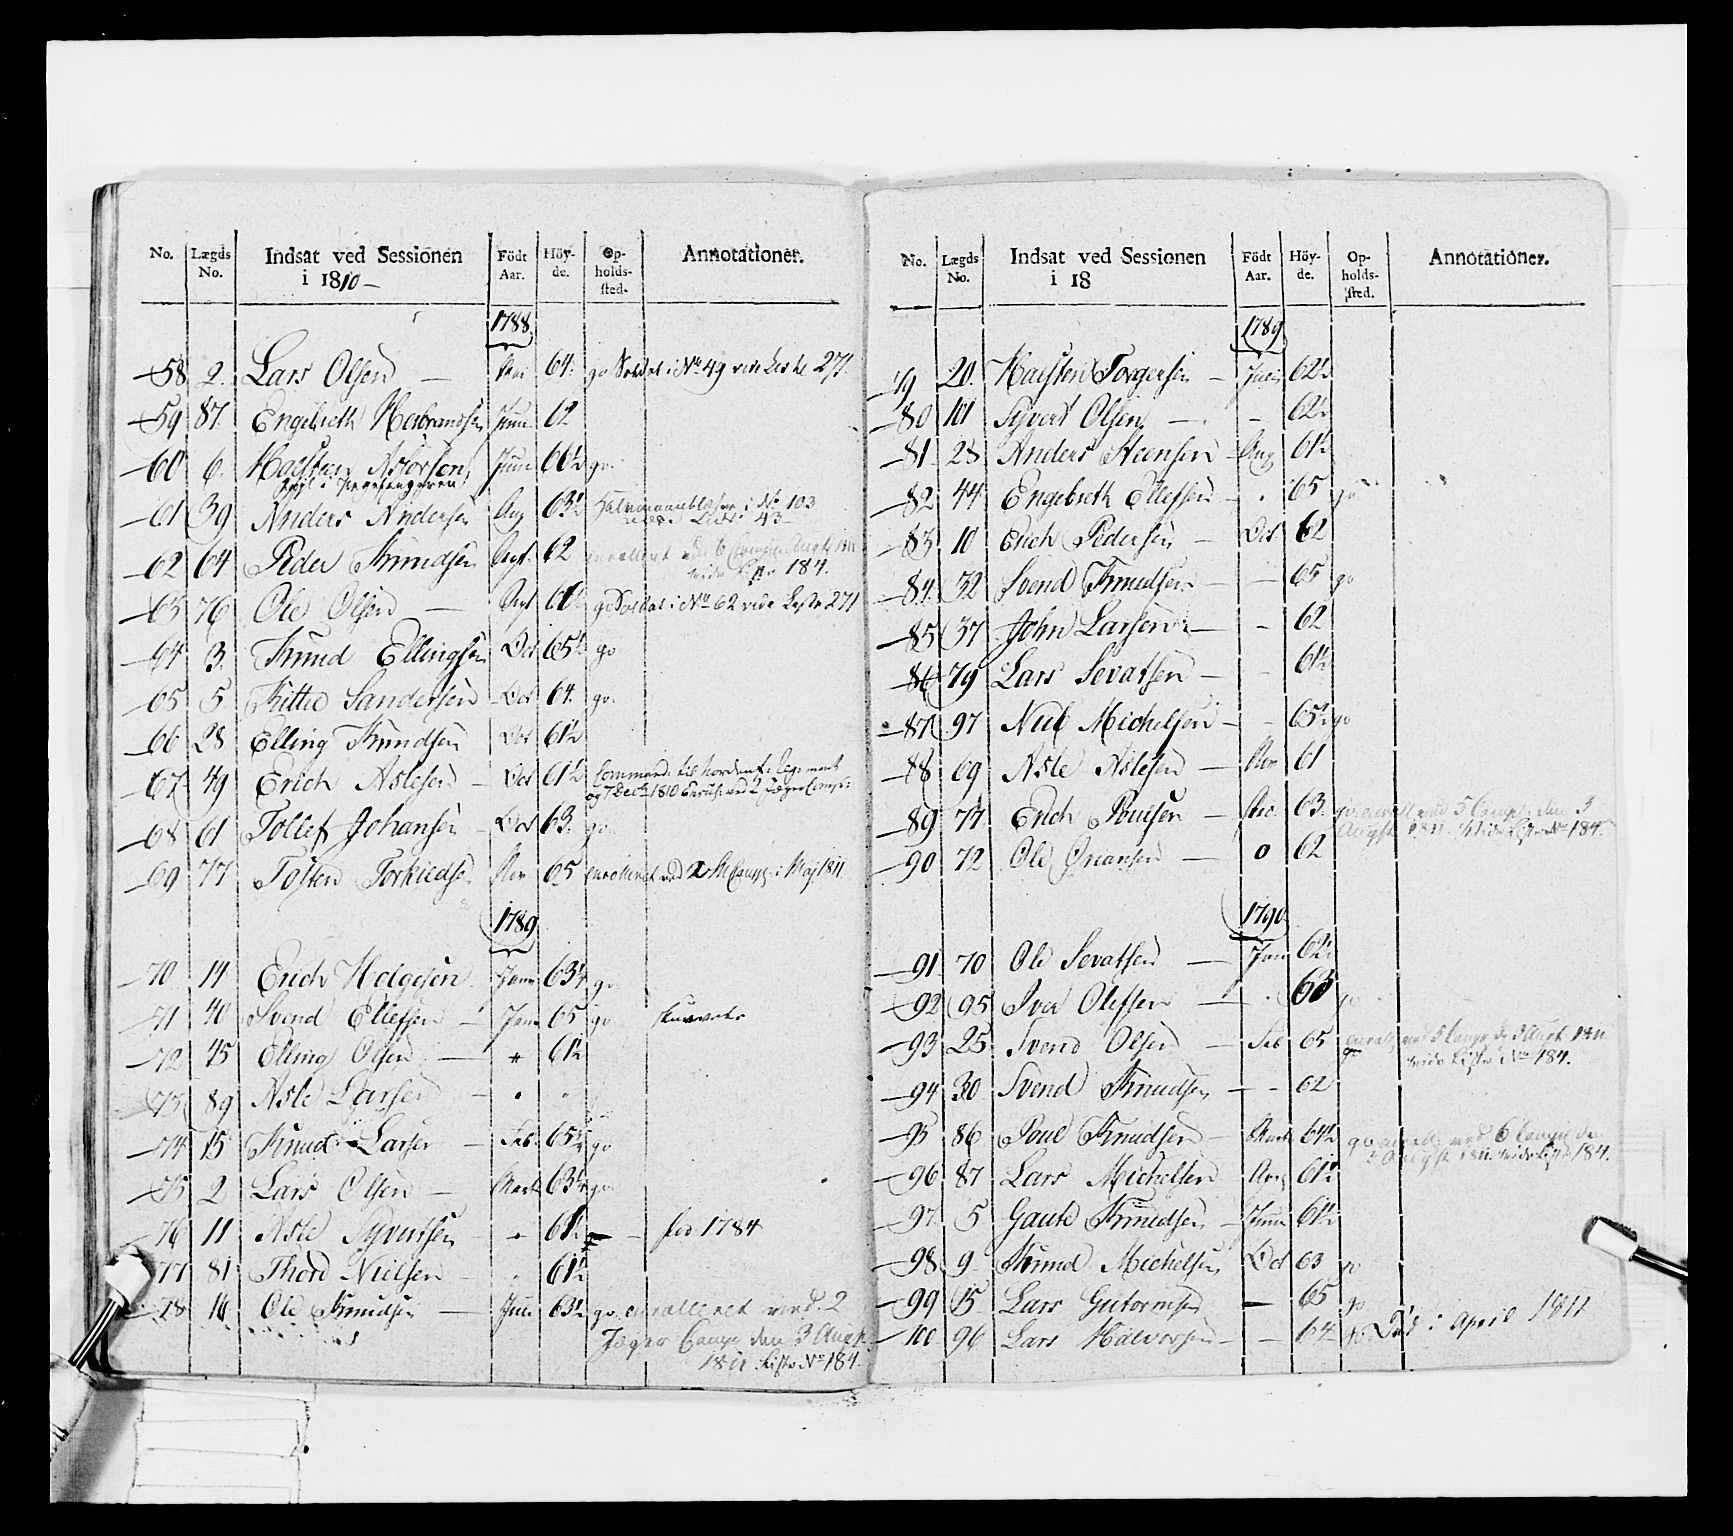 No. Lægds No. Indsat ved Sessionen i 1810 — Födt Aar. Höy-de. Op-holds-sted. Annotationer.
1788
58 2. Lars Olsen — Mai 64. go Soldat i No 49 vide Liste 271
59 87. Engebreth Herbrandsen Juni 62
60 6. Halsten Juni go
61 39 Anders Andersen Aug 63½ i No 103
43
62 64 Peder Knudsen Aug. 62 6 Comp: Augt 1811
vide Liste 184.
63 76 Ole Olsen — go Soldat i No 62 vide Liste 271
64 3. Knud Ellingsen Oct 65½ go
65 5 Kittil Sandersen — Oct 64. go.
66 28 Elling Knudsen Oct 61½
67 49 Erich Aslesen — Oct 61½ Command: til Regiment
og 7 Dec: 1810 ved 2 Jæger Comp:
68 61 Tollef Johansen — Oct 63. go.
69 77 Tosten Torkieldse Nov 65 enrolleret ved 2 Comp: i Maj 1811
1789
70 14 Erich Helgesen Janu 63¼ go
71 40 Svend Ellefsen — Janu 65 go
72 45 Elling Olsen — " 61½
73 89 Asle Larsen — " "
74 15 Knud Larsen — Feb. 65½ go
75 2 Lars Olsen — Mart 63½ go
76 11 Asle Syvertsen — " 61½ — fød 1784
77 81 Thord Nielsen — " 61½
78 16 Ole Knudsen — Juni 63½ go. enrolleret ved 2
Jæger Comp: den 3 Augt
1811. Liste No 184.
No. Lægds No. Indsat ved Sessionen i 18 Födt Aar. Höy-de. Op-holds-sted. Annotationer.
1789
79 20. Halsten Torgersen — Juni 62½
80 101 Syvert Olsen — - 62½
81 28 Anders Steensen — Aug 61½
82 44 Engebreth Ellefsen — " 65 go
83 10 Erich Pedersen — Oct 62
84. 32 Svend Knudsen — — 65 go
85 37 John Larsen — - 62
86 79 Lars Sevatsen — - 61½
87 97 Niels Michelsen — - 65½ go
88 69 Asle Aslesen — Nov 61
89 77 Erich Poulsen — 63. go. enroll: ved 5 Comp: den 3
Augt 1811. vide Liste No 184.
90 72 Ole — 0 62
1790
91 70 Ole Sevatsen — Janu 62½
92 95 Iver Olefsen — " 63 go
93 25 Svend Olsen — Feb 65 go enroll: ved 5 Comp: d 3 Augt 1811
vide Liste No 184.
94 30 Svend Knudsen — - 62
95 86 Poul Knudsen — Mart 64½ go enroll: ved 6 Comp: den
3 Augt 1811. vide Liste 184.
96 87 Lars Michelsen 61½
97. 5 Gaute Knudsen — Juni 61½
98 9. Knud Michelsen Oct 63 go
99 15 Lars Gutormsen — 65 go
100 96 Lars Halvorsen — - 64 go. Død i April 1811